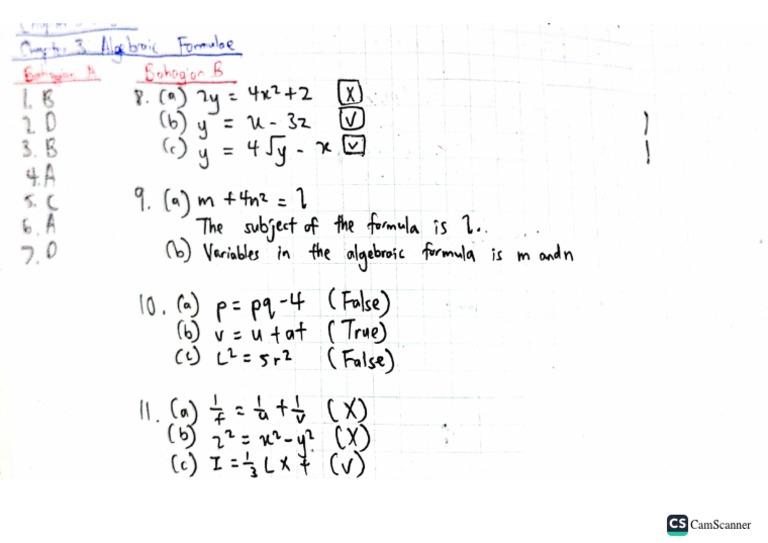 Chapter 3 Algebraic Formulae
Bahagian A
1. B
2. D
3. B
4. A
5. C
6. A
7. D
Bahagian B
8. (a) 2y = 4x²+2 [X]
(b) y = u - 3z [√]
(c) y = 4√y - x [√]
9. (a) m + 4n² = l
The subject of the formula is l.
(b) Variables in the algebraic formula is m and n
10. (a) p = pq - 4 (False)
(b) v = u + at (True)
(c) L² = 5r² (False)
11. (a) 1/f = 1/u + 1/v (X)
(b) z² = x² - y² (X)
(c) I = 1/3 L x t (√)
CS CamScanner